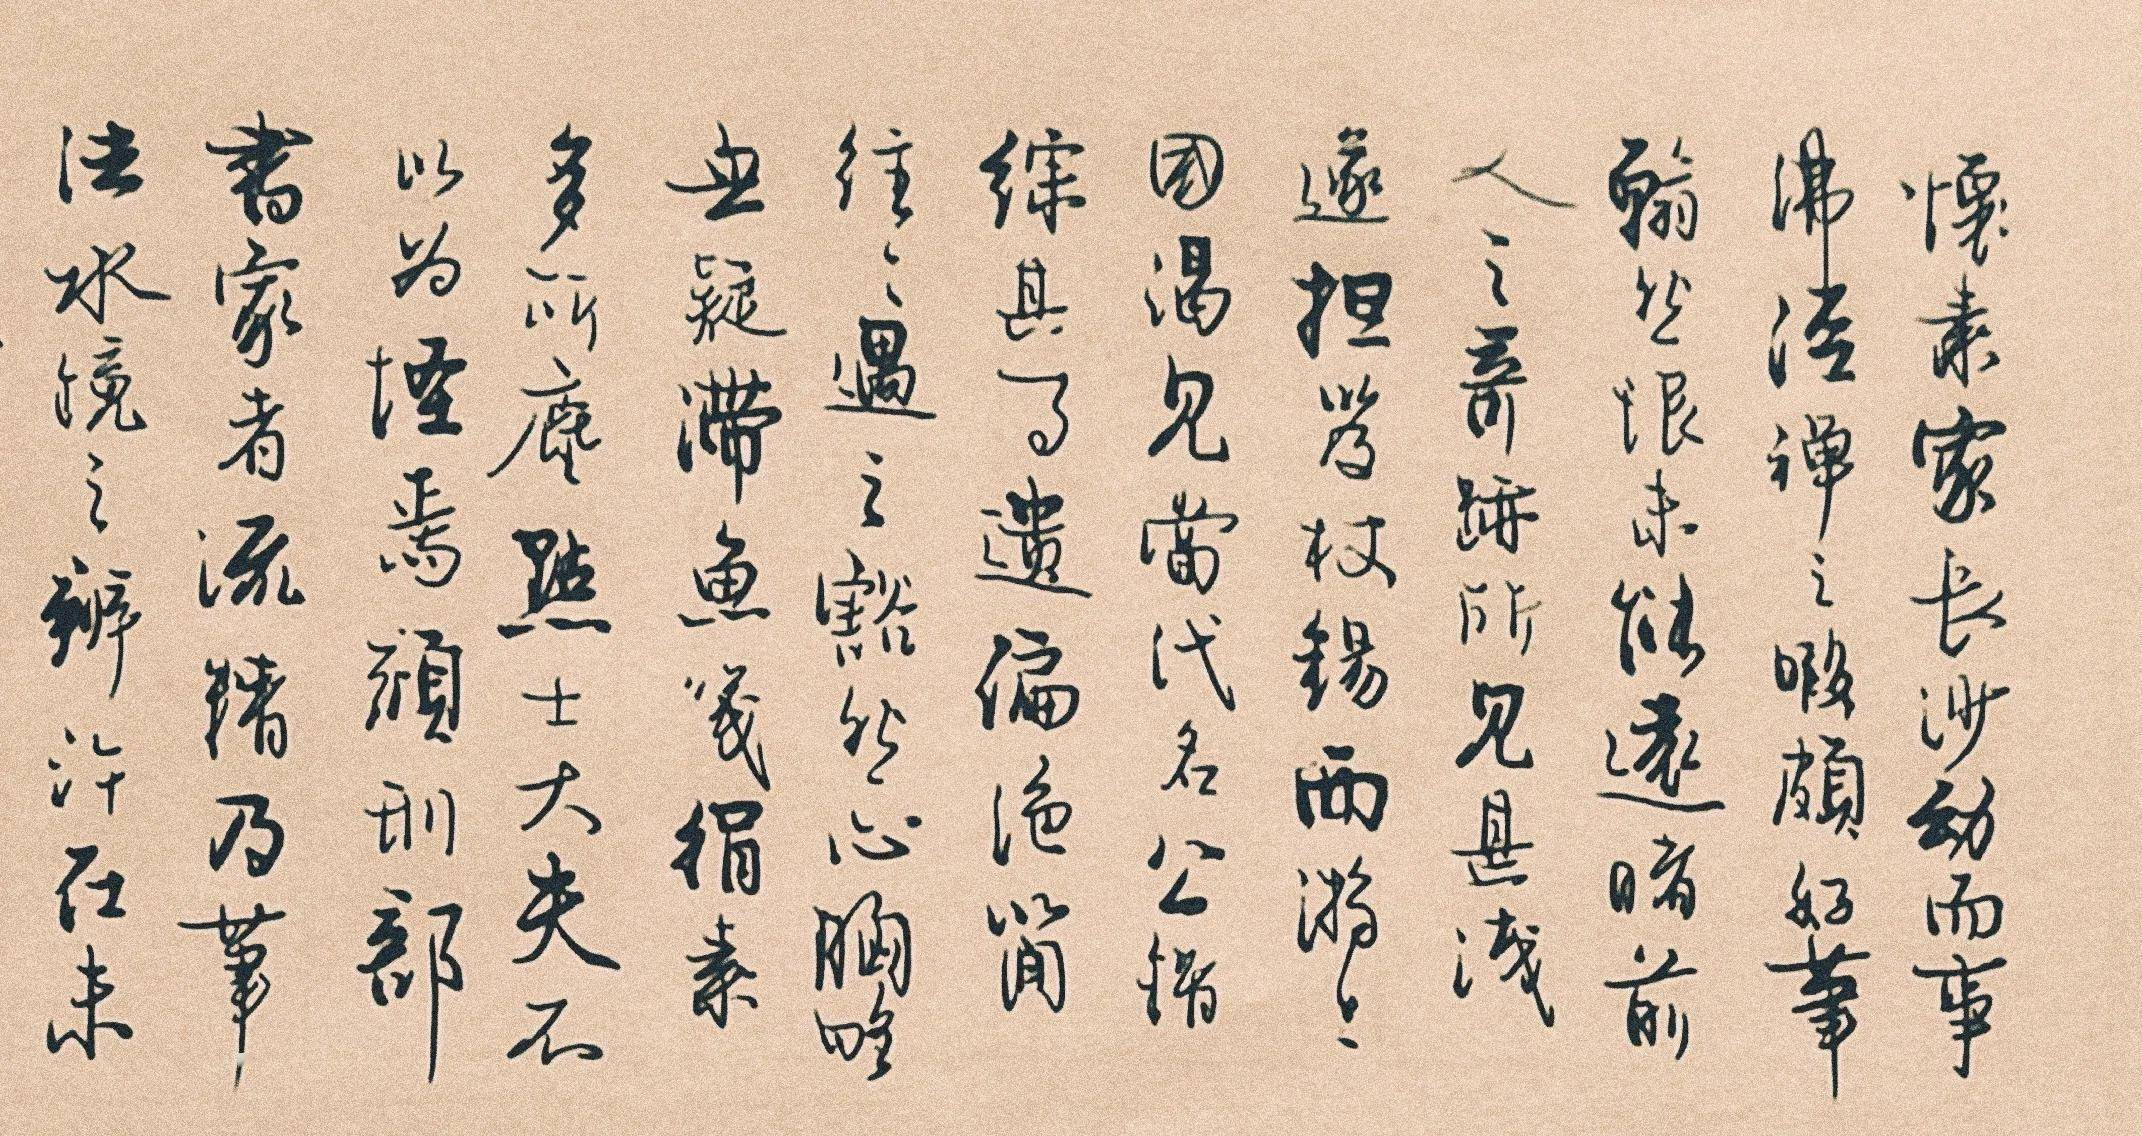 懷素家長沙幼而事
佛經禪之暇頗好筆
翰然恨未能遠睹前
人之奇跡所見甚淺
遂担笈杖錫西遊上
國渴見當代名公錯
綜其事遺編絕簡
往々遇之豁然心胸略
無疑滯魚箋絹素
多所塵點士大夫不
以为怪焉顔刑部
書家者流精乃筆
法水鏡之辨許在末